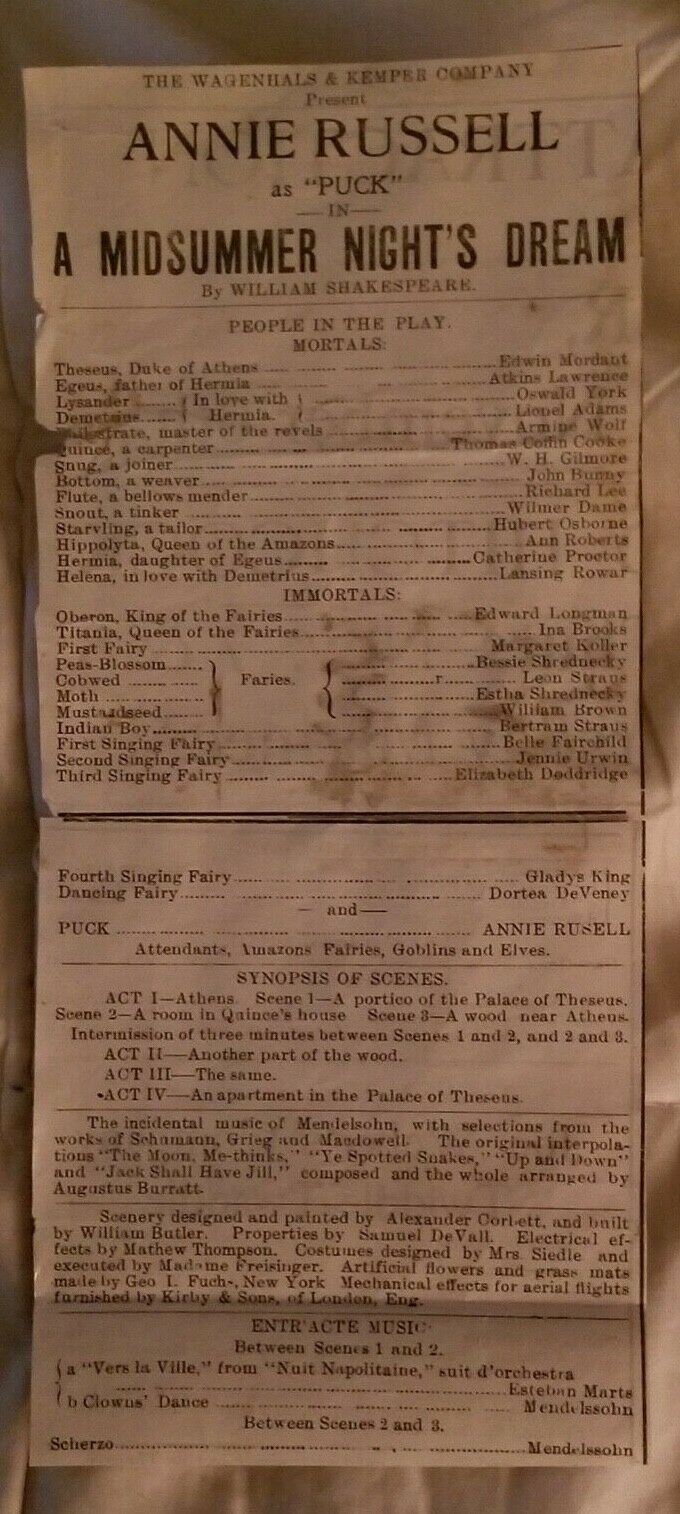 THE WAGENHALS & KEMPER COMPANY
Present
ANNIE RUSSELL
as "PUCK"
— IN —
A MIDSUMMER NIGHT'S DREAM
By WILLIAM SHAKESPEARE.
PEOPLE IN THE PLAY.
MORTALS:
Theseus, Duke of Athens ... Edwin Mordant
Egeus, father of Hermia ... Atkins Lawrence
Lysander ... { In love with } ... Oswald York
Demetrius ... { Hermia. } ... Lionel Adams
master of the revels ... Armine Wolf
Quince, a carpenter ... Thomas Coffin Cooke
Snug, a joiner ... W. H. Gilmore
Bottom, a weaver ... John Bunny
Flute, a bellows mender ... Richard Lee
Snout, a tinker ... Wilmer Dame
Starvling, a tailor ... Hubert Osborne
Hippolyta, Queen of the Amazons ... Ann Roberts
Hermia, daughter of Egeus ... Catherine Proctor
Helena, in love with Demetrius ... Lansing Rowar
IMMORTALS:
Oberon, King of the Fairies ... Edward Longman
Titania, Queen of the Fairies ... Ina Brooks
First Fairy ... Margaret Koller
Peas-Blossom ... Bessie Shrednecky
Cobwed ... } Faries. { ... r ... Leon Straus
Moth ... Estha Shrednecky
Mustardseed ... William Brown
Indian Boy ... Bertram Straus
First Singing Fairy ... Belle Fairchild
Second Singing Fairy ... Jennie Urwin
Third Singing Fairy ... Elizabeth Doddridge
Fourth Singing Fairy ... Gladys King
Dancing Fairy ... Dortea DeVeney
— and —
PUCK ... ANNIE RUSELL
Attendants, Amazons Fairies, Goblins and Elves.
SYNOPSIS OF SCENES.
ACT I—Athens. Scene 1—A portico of the Palace of Theseus.
Scene 2—A room in Quince's house Scene 3—A wood near Athens.
Intermission of three minutes between Scenes 1 and 2, and 2 and 3.
ACT II—Another part of the wood.
ACT III—The same.
ACT IV—An apartment in the Palace of Theseus.
The incidental music of Mendelsohn, with selections from the
works of Schumann, Grieg and Macdowell. The original interpola-
tions "The Moon, Me-thinks," "Ye Spotted Snakes," "Up and Down"
and "Jack Shall Have Jill," composed and the whole arranged by
Augustus Burratt.
Scenery designed and painted by Alexander Corbett, and built
by William Butler. Properties by Samuel DeVall. Electrical ef-
fects by Mathew Thompson. Costumes designed by Mrs. Siedle and
executed by Madame Freisinger. Artificial flowers and grass mats
made by Geo I. Fuchs, New York Mechanical effects for aerial flights
furnished by Kirby & Sons, of London, Eng.
ENTR'ACTE MUSIC
Between Scenes 1 and 2.
{ a "Vers la Ville," from "Nuit Napolitaine," suit d'orchestra
... Esteban Marts
{ b Clowns' Dance ... Mendelssohn
Between Scenes 2 and 3.
Scherzo ... Mendelssohn